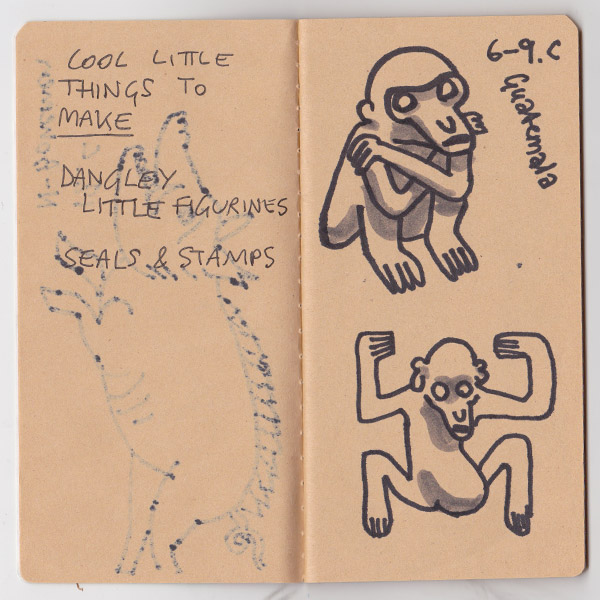 COOL LITTLE
THINGS TO
MAKE
DANGLEY
LITTLE FIGURINES
SEALS & STAMPS
6-9.C
Guatemala